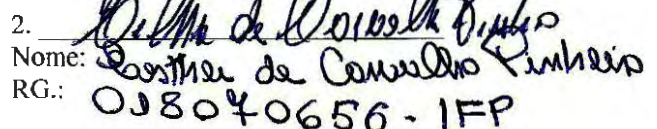 2. de
Nome: Esther de Carvalho Pinheiro
RG.: 018070656-IFP